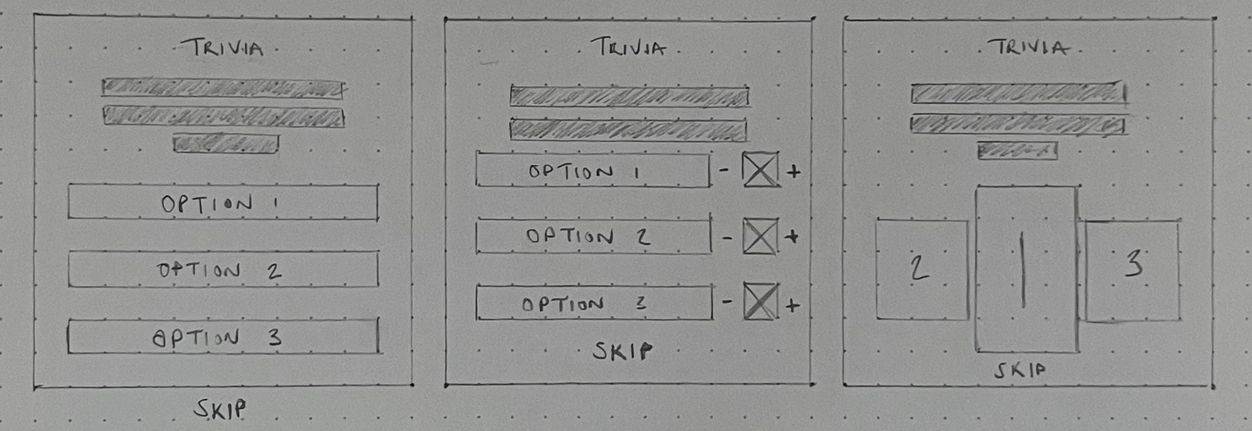 TRIVIA
OPTION 1
OPTION 2
OPTION 3
SKIP
TRIVIA
OPTION 1 - +
OPTION 2 - +
OPTION 3 - +
SKIP
TRIVIA
2 1 3
SKIP